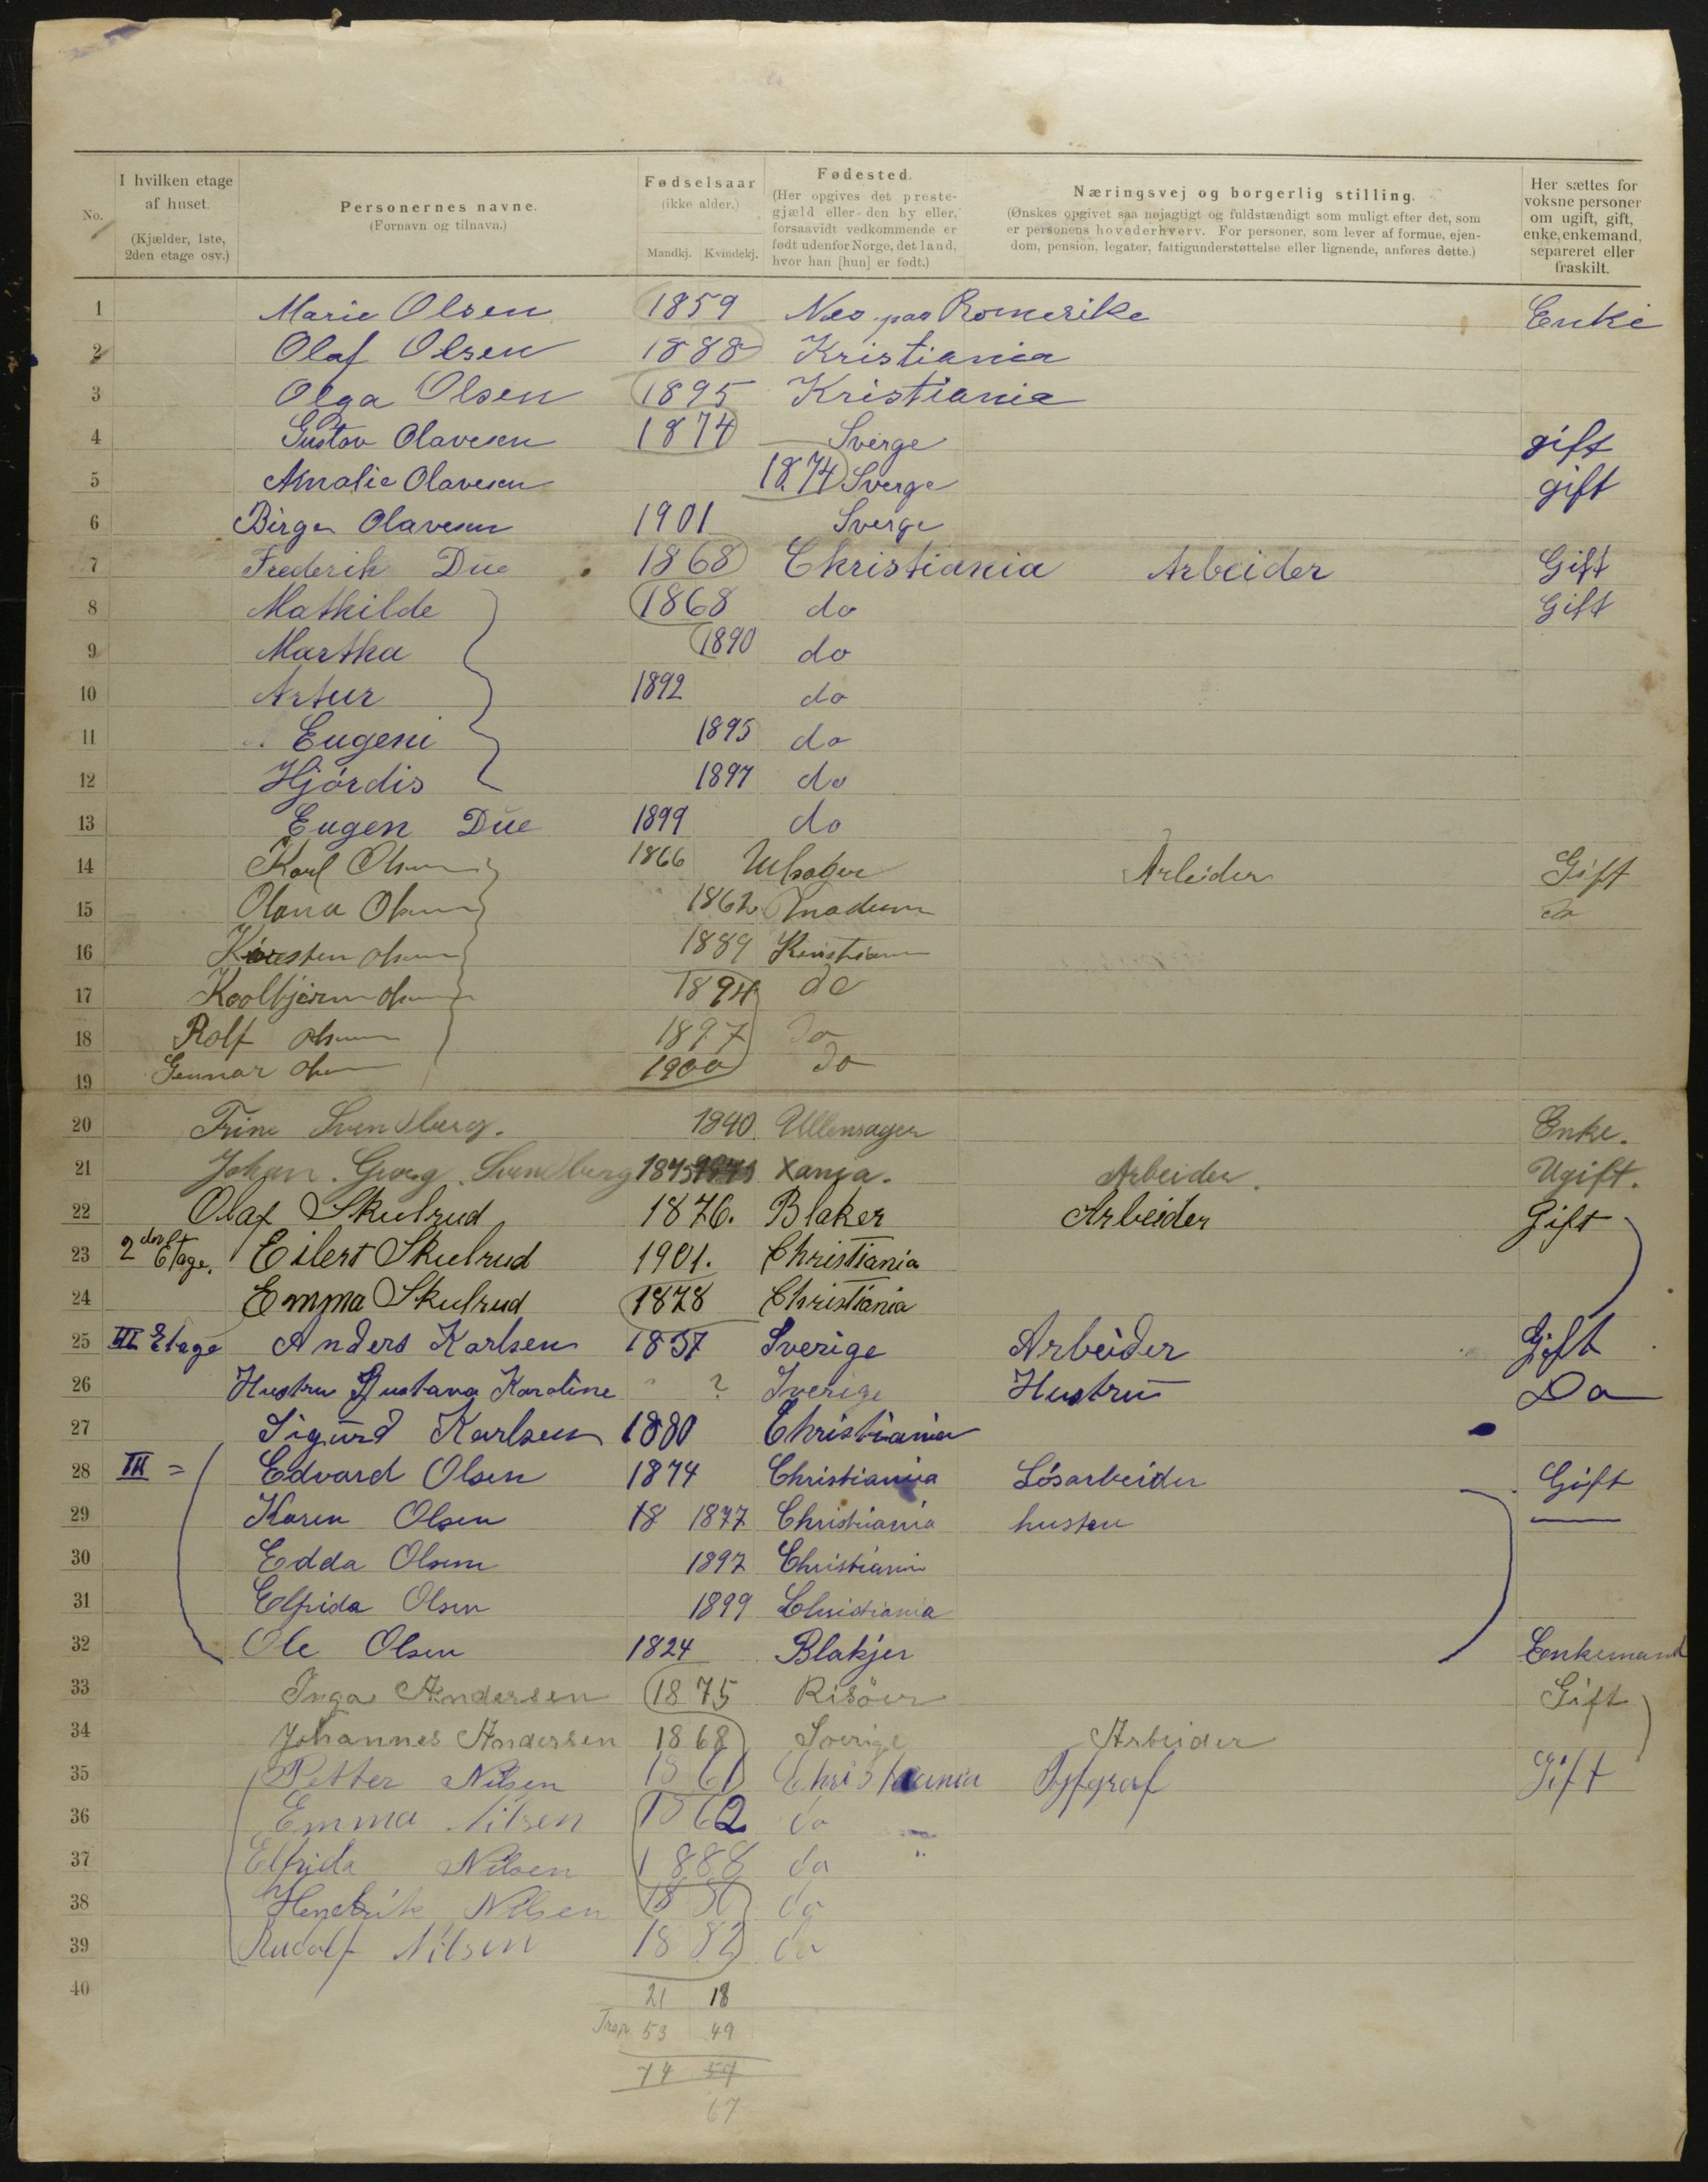 No.
I hvilken etage af huset.
(Kjælder, 1ste, 2den etage osv.)
Personernes navne.
(Fornavn og tilnavn.)
Fødselsaar
(ikke alder.)
Mandkj. Kvindekj.
Fødested.
(Her opgives det preste-
gjæld eller den by eller,
forsaavidt vedkommende er
født udenfor Norge, det land,
hvor han [hun] er født.)
Næringsvej og borgerlig stilling.
(Ønskes opgivet saa nøjagtigt og fuldstændigt som muligt efter det, som
er personens hovederhverv. For personer, som lever af formue, ejen-
dom, pension, legater, fattigunderstøttelse eller lignende, anføres dette.)
Her sættes for
voksne personer
om ugift, gift,
enke, enkemand,
separeret eller
fraskilt.
1 Marie Olsen 1859 Nes paa Romerike Enke
2 Olaf Olsen 1888 Kristiania
3 Olga Olsen 1895 Kristiania
4 Gustav Olavesen 1874 Sverge gift
5 Amalie Olavesen 1874 Sverge gift
6 Birger Olavesen 1901 Sverge
7 Frederik Due 1868 Christiania Arbeider Gift
8 Mathilde 1868 do Gift
9 Martha 1890 do
10 Artur 1892 do
11 Eugeni 1895 do
12 Hjórdis 1897 do
13 Eugen Due 1899 do
14 Karl Olsen 1866 Arbeider Gift
15 Olava Olsen 1862 do
16 Olsen 1889 Kristiania
17 Kolbjørn Olsen 1894 do
18 Rolf Olsen 1897 do
19 Gunnar Olsen 1900 do
20 Trine Svendberg. 1840 Ullensager Enke.
21 Johan. Georg. Svendberg 1875 Xania. Arbeider. Ugift.
22 Olaf Skulrud 1876. Blaker Arbeider Gift
23 2den Etage. Eilert Skulrud 1901. Christiania
24 Emma Skulrud 1878 Christiania
25 III Etage Anders Karlsen 1837 Sverige Arbeider Gift
26 Hustru Gustava Karoline ? Sverige Hustru Do
27 Sigurd Karlsen 1880 Christiania
28 III = Edvard Olsen 1874 Christiania Lösarbeider Gift
29 Karen Olsen 18 1877 Christiania hustru
30 Edda Olsen 1897 Christiania
31 Elfrida Olsen 1899 Christiania
32 Ole Olsen 1824 Blakjer Enkemand
33 Inga Andersen 1875 Risöer Gift
34 Johannes Andersen 1868 Sverige Arbeider
35 Petter Nilsen 1861 Christiania Gift
36 Emma Nilsen 1862 do
37 Elfrida Nilsen 1888 do
38 Hendrik Nilsen do
39 Rudolf Nilsen do
40 21 18
53 49
74 57
67